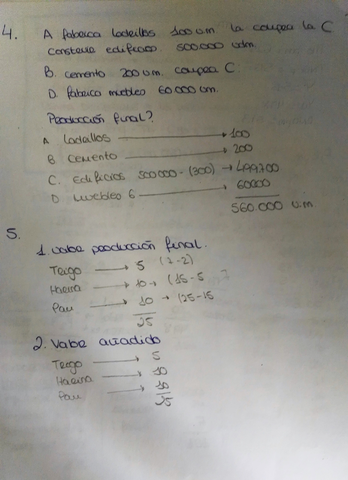 4. A fabrica ladrillos 100 um. la compra la C
construye edificios. 500.000 udm.
B. cemento 200 um. compra C.
D. fabrica muebles 60.000 um.
Producción final?
A ladrillos → 100
B Cemento → 200
C. Edificios 500000 - (300) → 499700
D muebles 6 → 60000
560.000 u.m
5.
1. valor producción final.
Trigo → 5 (7-2)
Harina → 10 → (15-5 ?
Pan → 10 → (25-15
25
2. Valor añadido
Trigo → 5
Harina → 10
Pan → 10
25